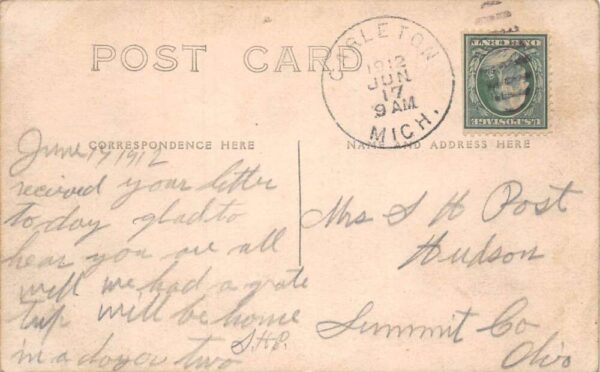 POST CARD
CARLETON
1912
JUN
17
9 AM
MICH.
U.S. POSTAGE
ONE CENT
CORRESPONDENCE HERE
NAME AND ADDRESS HERE
June 17 1912
recieved your letter
to day glad to
hear you are all
well we had a grate
trip will be home
in a day or two
S.H.P.
Mrs S H Post
Hudson
Summit Co
Ohio